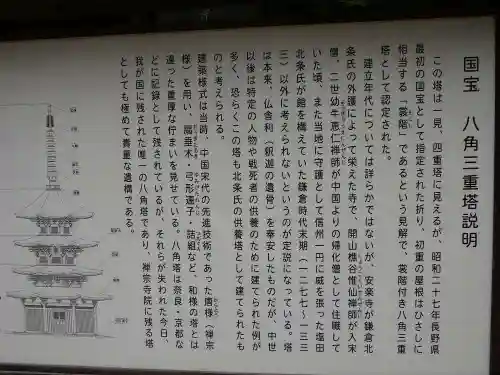 国宝　八角三重塔説明
この塔は一見、四重塔に見えるが、昭和二十七年長野県
最初の国宝として指定された折り、初重の屋根はひさしに
相当する「裳階」であるという見解で、裳階付き八角三重
塔として認定された。
建立年代については詳らかではないが、安楽寺が鎌倉北
条氏の外護によって栄えた寺で、開山樵谷惟仙禅師が入宋
僧、二世幼牛恵仁禅師が中国よりの帰化僧として住職して
いた頃、また当地に守護として信州一円に威を張った塩田
北条氏が館を構えていた鎌倉時代末期（一二七七～一三三
三）以外に考えられないというのが定説になっている。塔
は本来、仏舎利（釈迦の遺骨）を奉安したものだが、中世
以後は特定の人物や戦死者の供養のために建てられた例が
多く、恐らくこの塔も北条氏の供養塔として建てられたも
のと考えられる。
建築様式は当時、中国宋代の先進技術であった唐様（禅宗
様）を用い、扇垂木・弓形連子・詰組など、和様の塔とは
違った重厚な佇まいを見せている。八角塔は奈良・京都な
どに記録として残されているが、それらが失われた今日、
我が国に残された唯一の八角塔であり、禅宗寺院に残る塔
としても極めて貴重な遺構である。